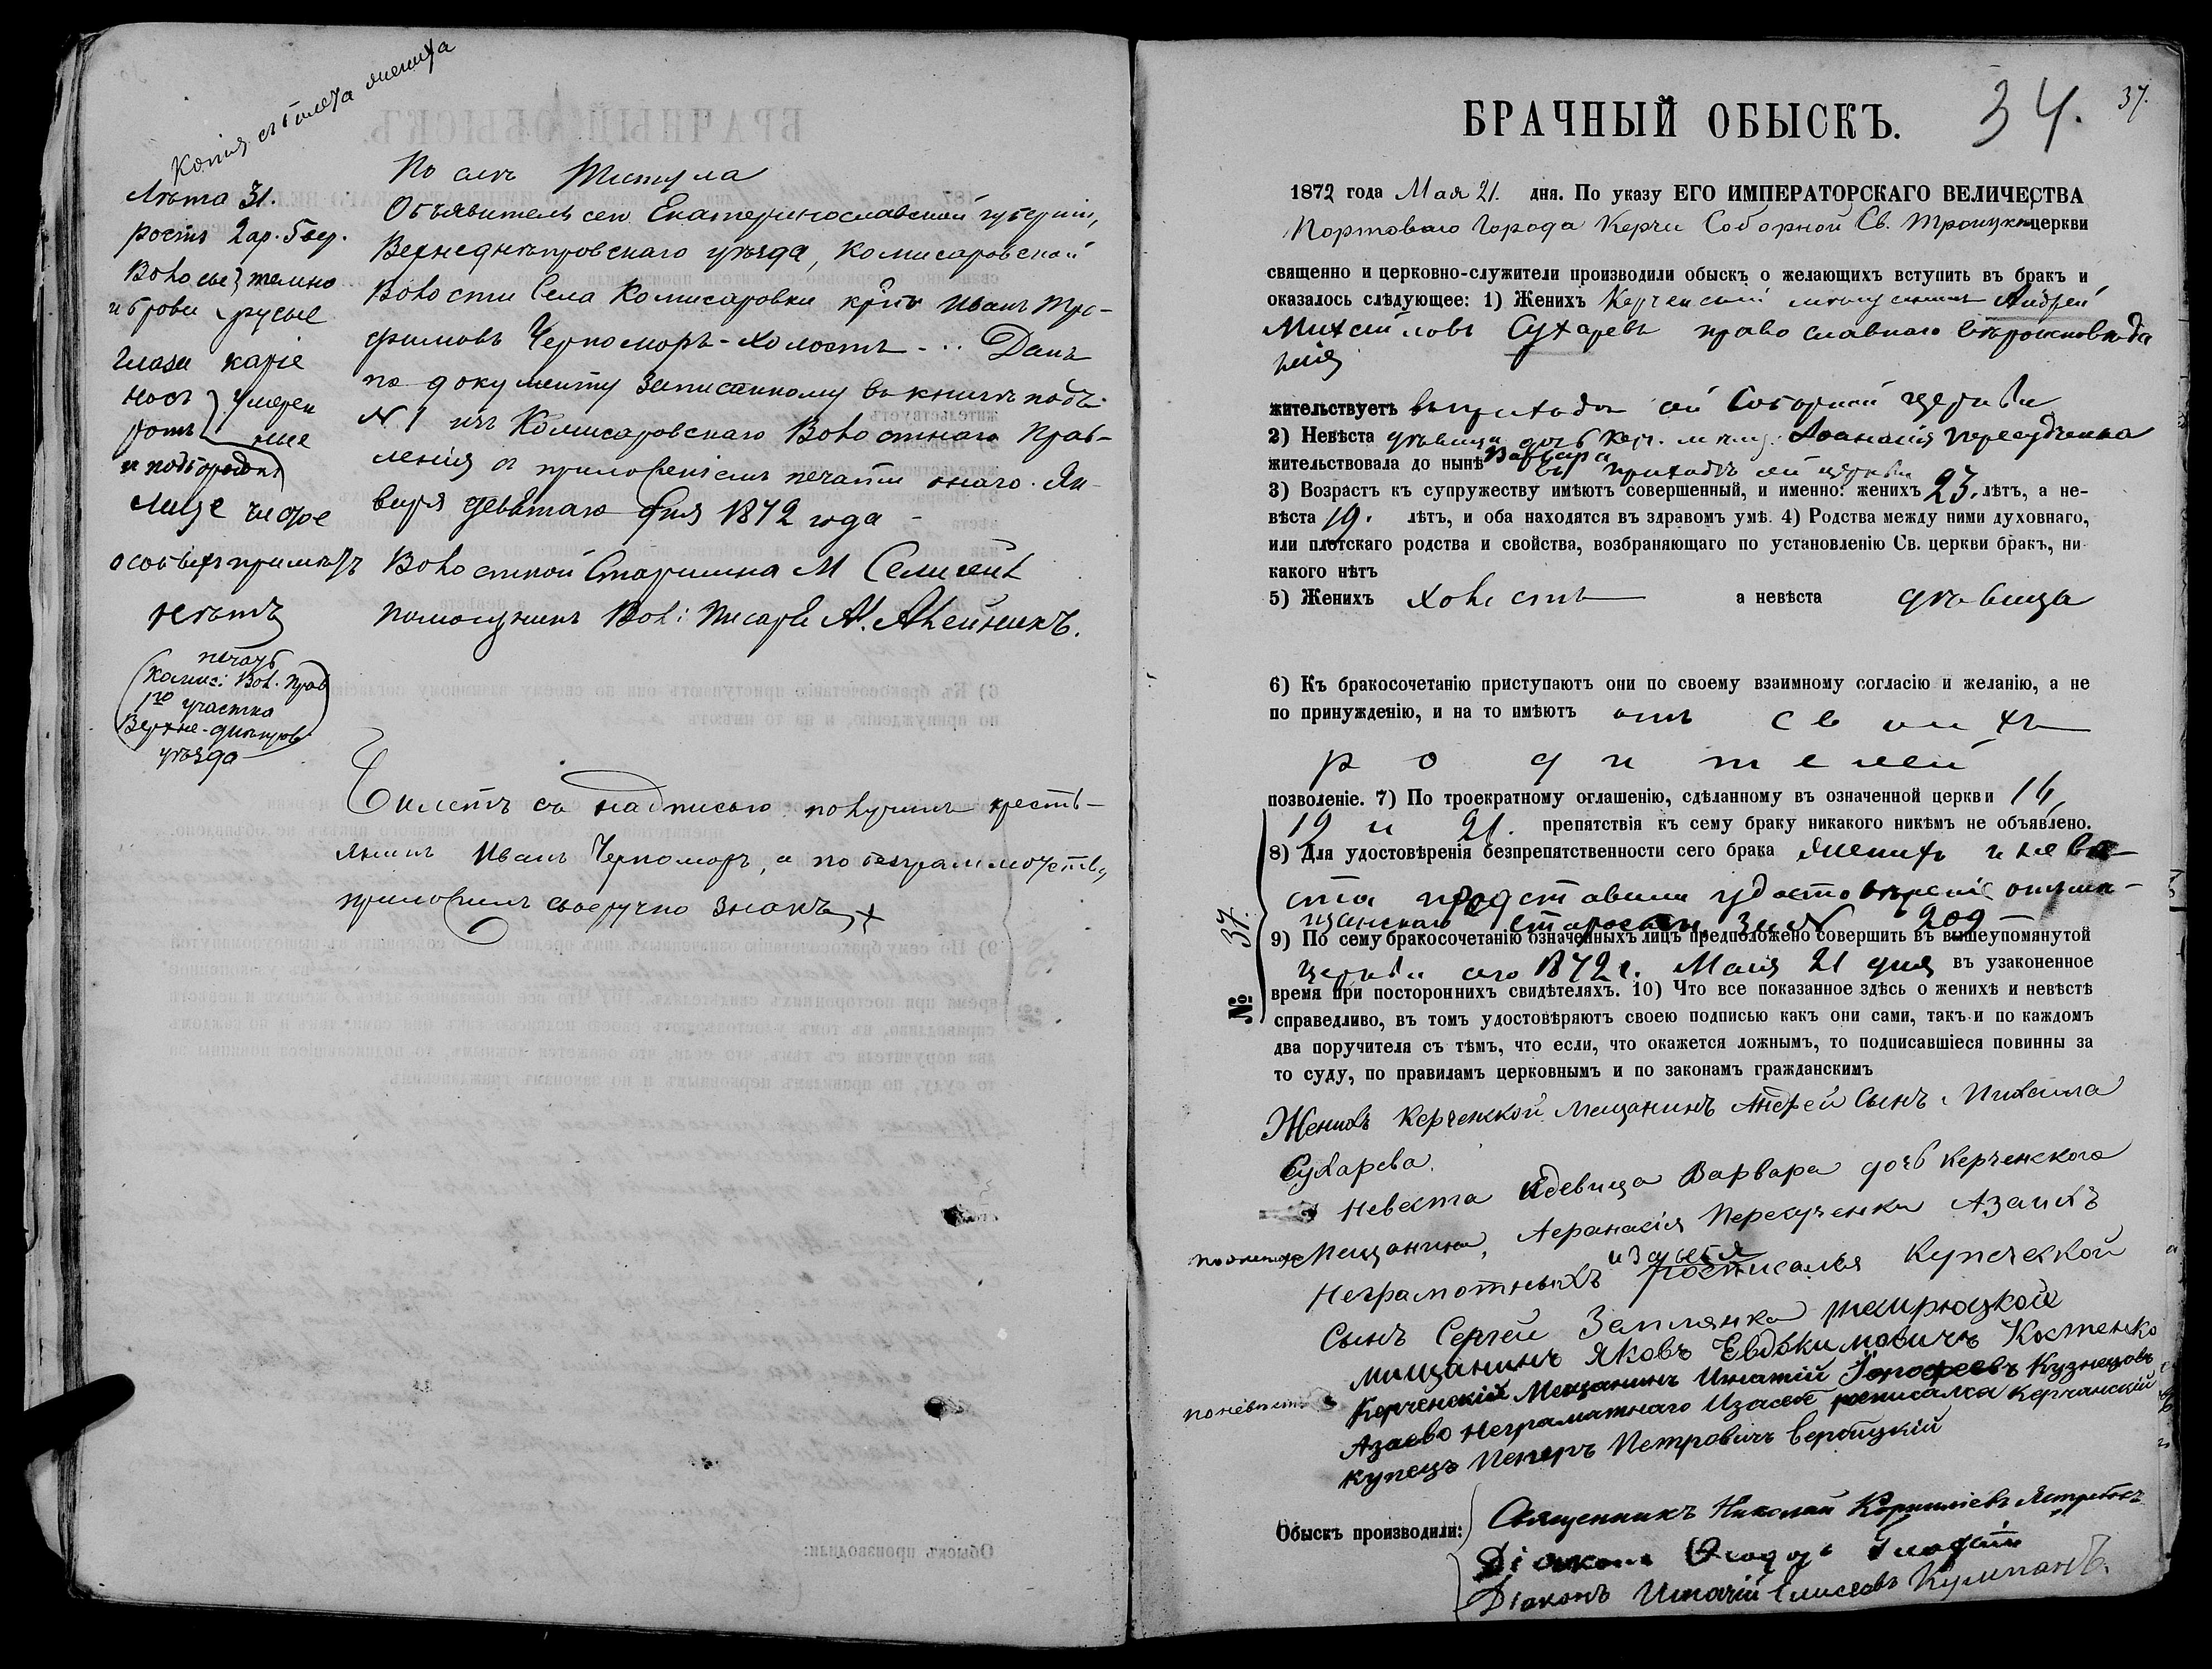 Копія съ билета жениха
Лѣта 31.
ростъ 2 ар. 5 вер.
Волосы } темно
и брови русые
глаза каріе
носъ } умерен
ротъ ные
и подбородокъ
лице чистое
особыхъ примѣтъ
нѣтъ
печать
Комис: Вол. Прав
1го участка
Верхне-днѣпров
уѣзда
По силѣ Титула
Объявитель сего Екатеринославской губерніи,
Верхнеднѣпровскаго уѣзда, Комисаровской
Волости Села Комисаровки крнъ Иванъ Тро-
фимовъ Черноморъ-холостъ - .. Данъ
по документу записанному въ книгѣ подъ
№ 1 изъ Комисаровскаго Волостнаго Прав-
ленія съ приложеніемъ печати онаго. Ян-
варя девятаго дня 1872 года -
Волостной Старшина М
помощникъ Вол: Писаря А. Алейникъ.
Билетъ съ надписью получилъ кресть-
янинъ Иванъ Черноморъ, а по безграмотству
приложилъ своеручно знакъ +
БРАЧНЫЙ ОБЫСКЪ.
34.
37.
1872 года Мая 21. дня. По указу ЕГО ИМПЕРАТОРСКАГО ВЕЛИЧЕСТВА
Портоваго Города Керчи Соборной Св. Троицкой церкви
священно и церковно-служители производили обыскъ о желающихъ вступить въ бракъ и
оказалось слѣдующее: 1) Женихъ Керченскій мѣщанинъ Андрей
Михайловъ Сухаревъ православнаго вѣроисповѣда
нія
жительствуетъ въ приходѣ сей Соборной церкви
2) Невѣста дѣвица дочь Керч. мѣщ. Афанасія Пересуденка
Варвара
жительствовала до нынѣ въ приходѣ сей церкви
3) Возрастъ къ супружеству имѣютъ совершенный, и именно: женихъ 23. лѣтъ, а не-
вѣста 19. лѣтъ, и оба находятся въ здравомъ умѣ. 4) Родства между ними духовнаго,
или плотскаго родства и свойства, возбраняющаго по установленію Св. церкви бракъ, ни
какого нѣтъ
5) Женихъ холостъ а невѣста дѣвица
6) Къ бракосочетанію приступаютъ они по своему взаимному согласію и желанію, а не
по принужденію, и на то имѣютъ отъ своихъ
родителей
позволеніе. 7) По троекратному оглашенію, сдѣланному въ означенной церкви 14,
19 и 21. препятствія къ сему браку никакого никѣмъ не объявлено.
8) Для удостовѣренія безпрепятственности сего брака женихъ и невѣ-
ста представили удостовѣреніе отъ мѣ-
щанскаго Старосты за № 209 -
9) По сему бракосочетанію означенныхъ лицъ предположено совершить въ вышеупомянутой
церкви сего 1872 г. Маія 21 дня въ узаконенное
время при постороннихъ свидѣтеляхъ. 10) Что все показанное здѣсь о женихѣ и невѣстѣ
справедливо, въ томъ удостовѣряютъ своею подписью какъ они сами, такъ и по каждомъ
два поручителя съ тѣмъ, что если, что окажется ложнымъ, то подписавшіеся повинны за
то суду, по правиламъ церковнымъ и по законамъ гражданскимъ
№ 37.
Женихъ Керченской Мещанинъ Андрей Сынъ Михаила
Сухарева.
Невеста Девица Варвара дочь Керченскога
по женихѣ Мещанина, Аеранасія Пересученки Азаихъ
изасебя
Неграмотныхъ росписался Купеческой
Сынъ Сергей Заплянка темрюцкой
мищанинъ Яковъ Евдокимовичъ Костенко
по невѣстѣ Керченскій Мещанинъ Игнатій Кузнецовъ
Азаево неграматнаго Изасебе росписалса Керчанскій
купецъ Петръ Петровичъ Вербицкій
Обыскъ производили: Священникъ Николай Корниліевъ
Діаконъ Ѳеодоръ
Діаконъ Игнатій Елисеевъ Кумпанъ.